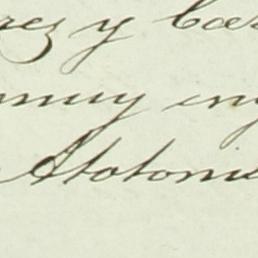 rez y Car
muy eng
Atotoni